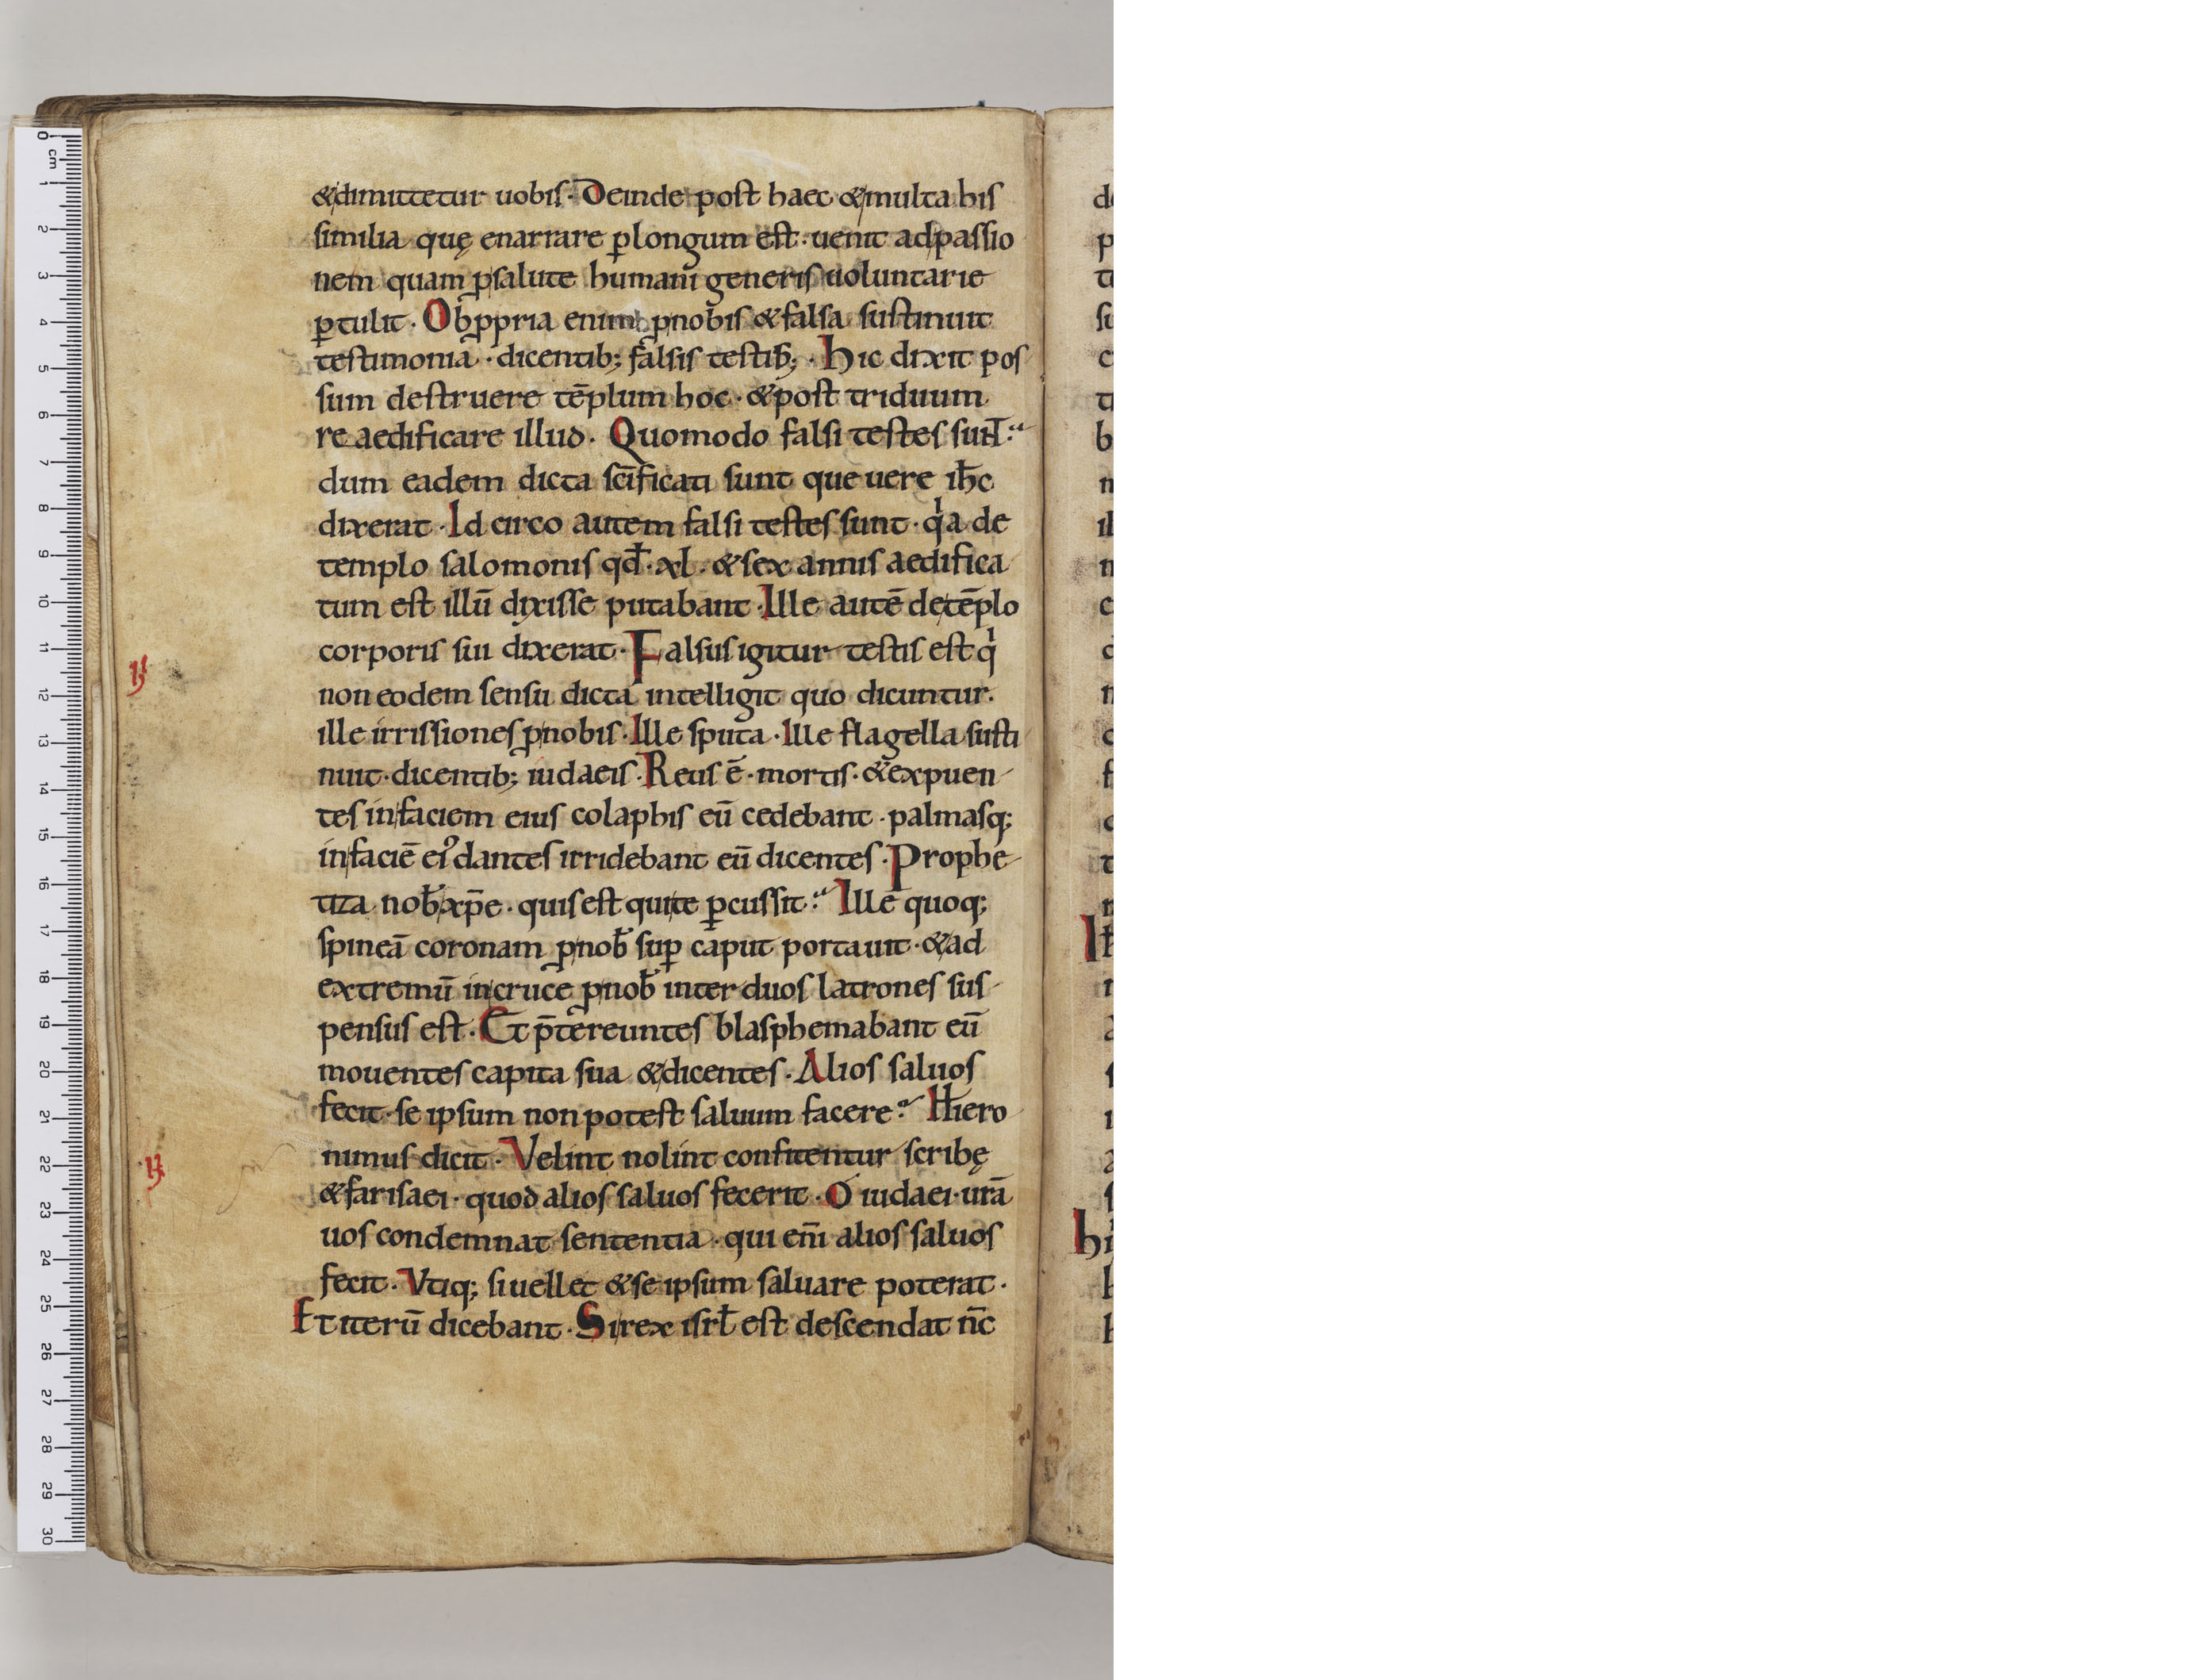 &dimittetur uobis· Deinde post haec &multa his
similia quę enarrare ꝑlongum est· uenit adpassio
nem quam ꝓsalute humani generis uoluntarie
ꝑtulit· Obꝓpria enim ꝓnobis &falsa sustinuit
testimonia· dicentib; falsis testib;· Hic dixit pos
sum destruere tēplum hoc· &post triduum
re aedificare illud· Quomodo falsi testes sunt·
dum eadem dicta scīficati sunt que uere ihc̄
dixerat· Id circo autem falsi testes sunt· qͥa de
templo salomonis qd̄· xl· &sex annis aedifica
tum est illū dixisse putabant· Ille autē detēplo
corporis sui dixerat· Falsus igitur testis est qͥ
non eodem sensu dicta intelligit quo dicuntur.
ille irrissiones ꝓnobis· Ille sputa· Ille flagella susti
nuit· dicentib; iudaeis· Reus ē· mortis· &expuen
tes infaciem eius colaphis eū cedebant· palmasq;
infaciē eiꝰ dantes irridebant eū dicentes· Prophe
tiza nob̄ xp̄e· quis est quite ꝑcussit· Ille quoq;
spineā coronam ꝓnob̄ suꝑ caput portauit· &ad
extremū incruce ꝓnob̄ inter duos latrones sus
pensus est· Et p̄tereuntes blasphemabant eū
mouentes capita sua &dicentes· Alios saluos
fecit· se ipsum non potest saluum facere· Hiero
nimus dicit· Velint nolint confitentur scribę
&farisaei· quod alios saluos fecerit· O iudaei· urā
uos condemnat sententia· qui eni̅ alios saluos
fecit· Vtiq; si uellet &se ipsum saluare poterat·
Et iterū dicebant· Si rex isrl̄ est descendat nc̄